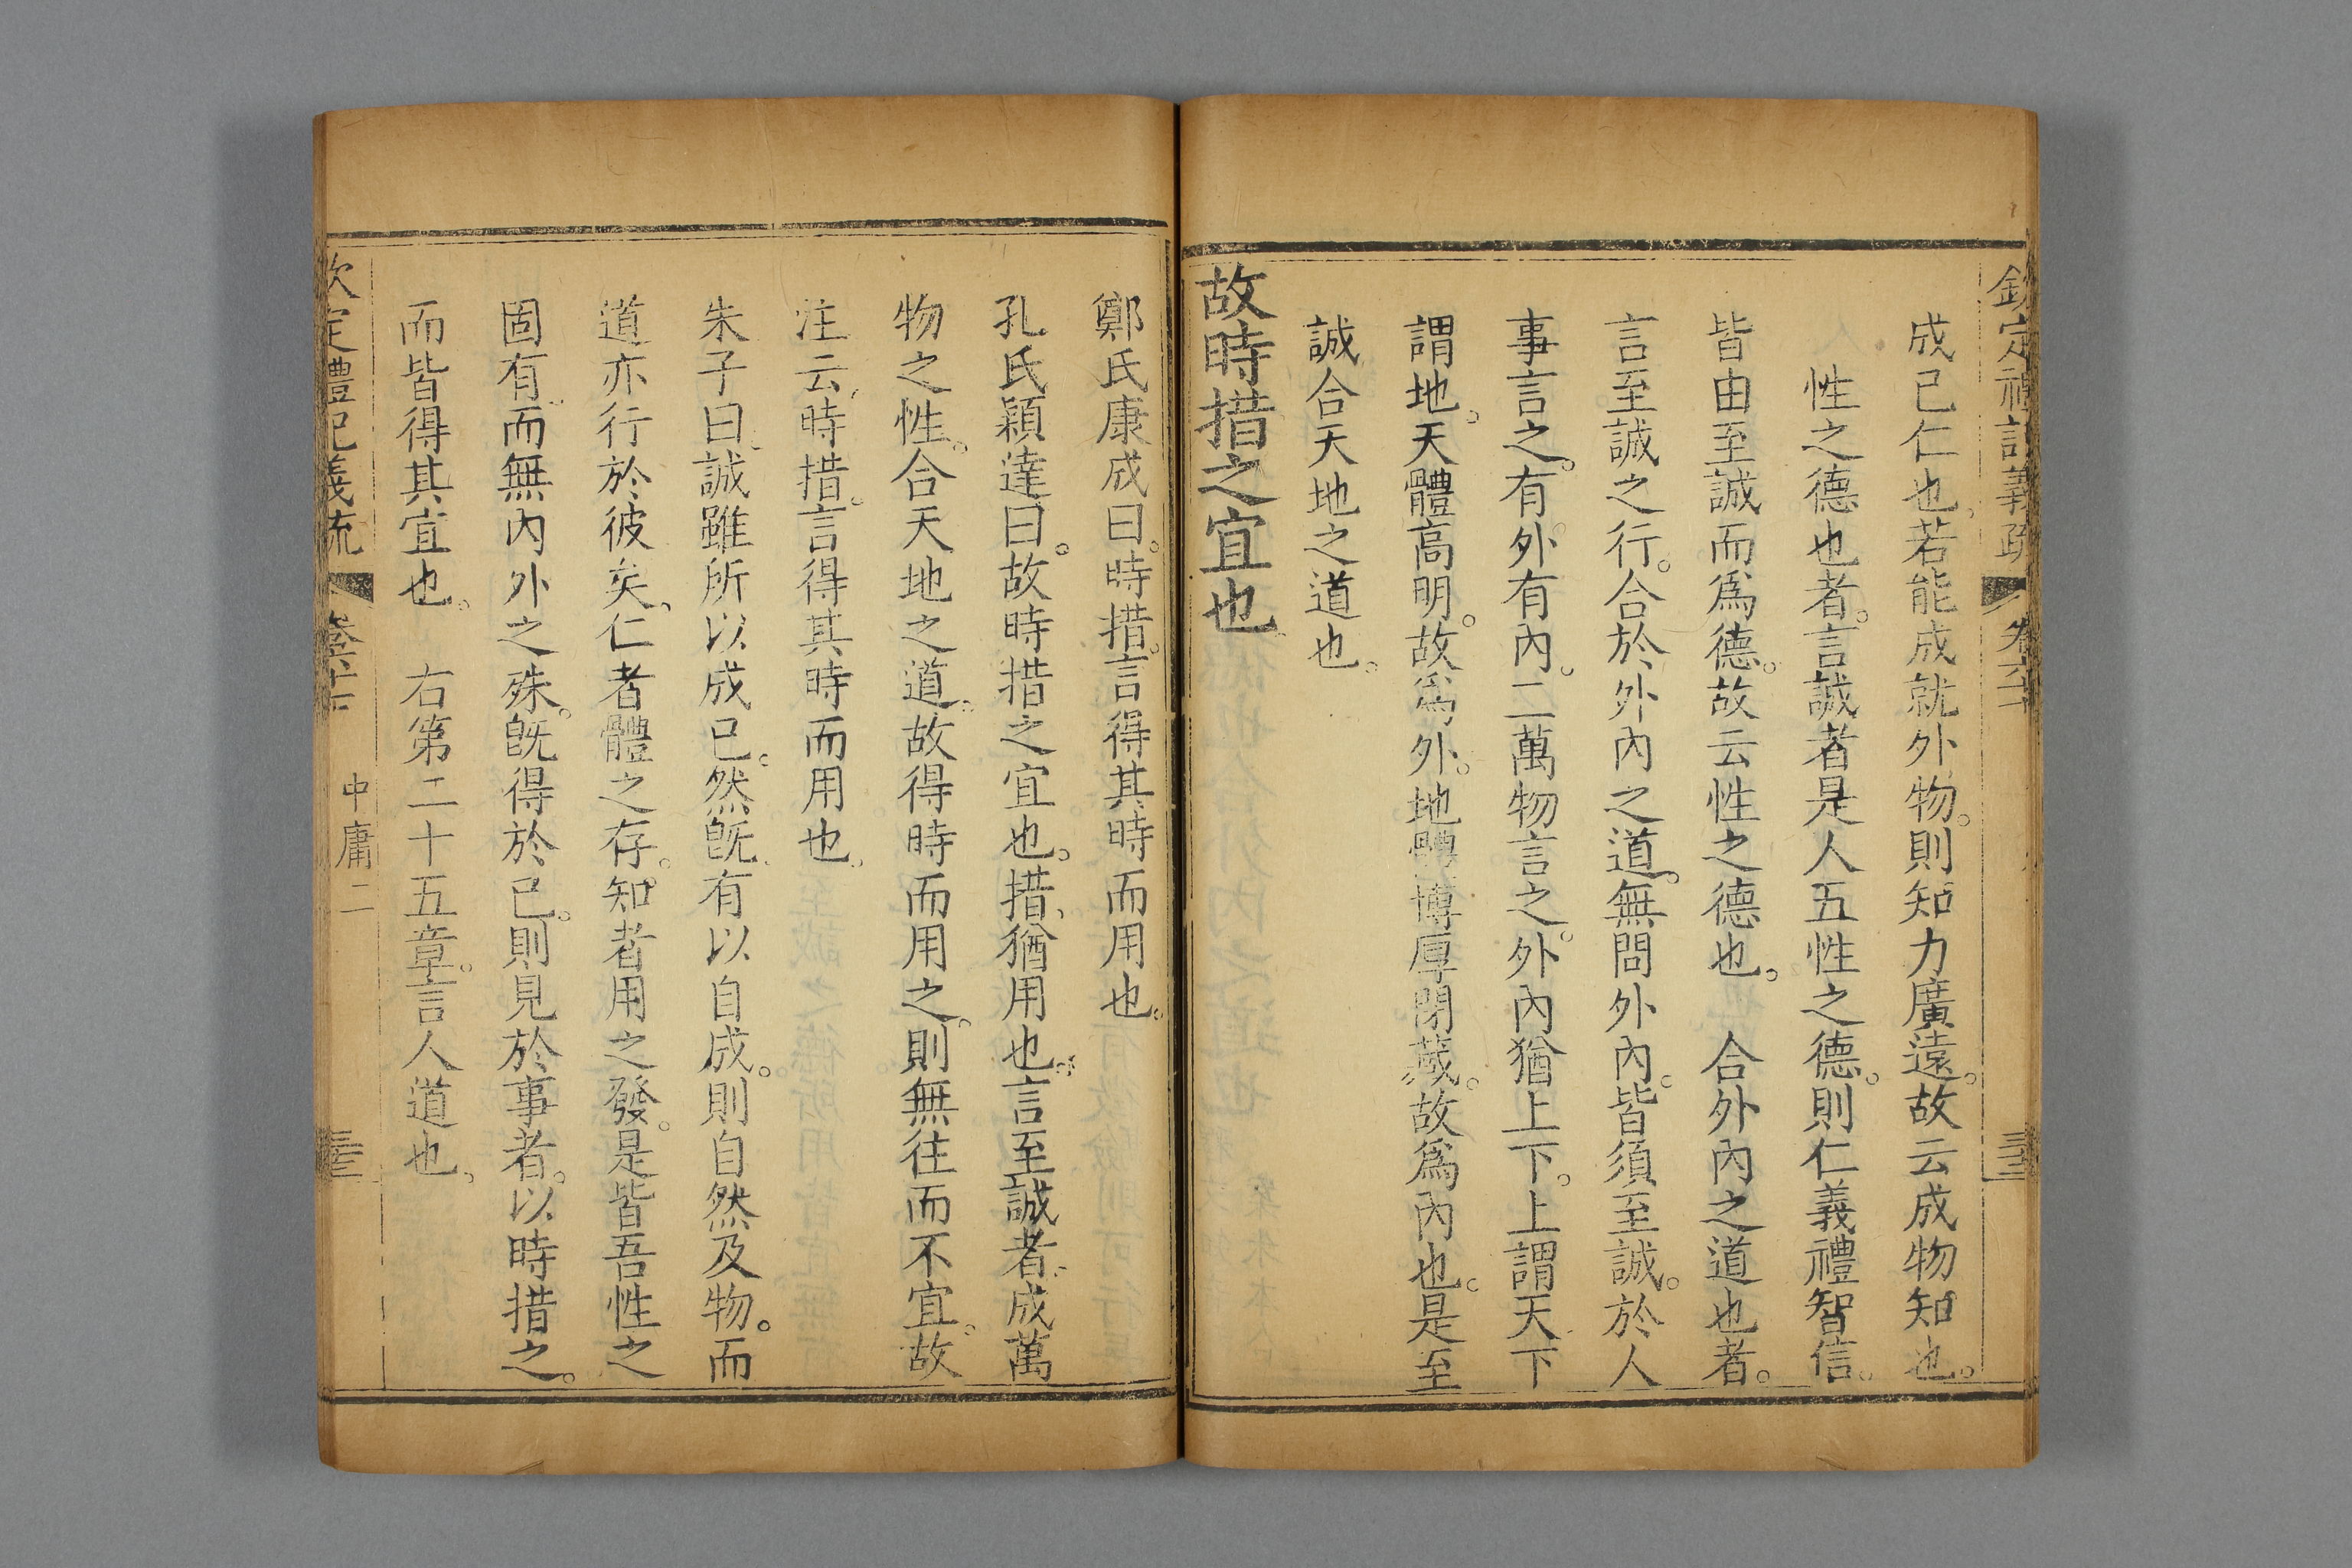 欽定禮記義疏 卷六十
成已仁也若能成就外物。則知力廣遠。故云成物知也。
性之德也者。言誠者是人五性之德。則仁義禮智信。
皆由至誠而爲德。故云性之德也。 合外內之道也者。
言至誠之行。合於外內之道。無問外內。皆須至誠。於人
事言之。有外有內。二萬物言之。外內猶上下。上謂天下
謂地。天體高明。故爲外。地體博厚閉藏。故爲內也。是至
誠合天地之道也。
故時措之宜也
鄭氏康成曰。時措。言得其時而用也。
孔氏穎達曰。故時措之宜也。措、猶用也。言至誠者。成萬
物之性。合天地之道。故得時而用之。則無往而不宜。故
注云、時措。言得其時而用也。
朱子曰、誠雖所以成已。然旣有以自成。則自然及物。而
道亦行於彼矣。仁者體之存。知者用之發。是皆吾性之
固有、而無內外之殊。旣得於已。則見於事者。以時措之。
而皆得其宜也。 右第二十五章。言人道也。
欽定禮記義疏 中庸二